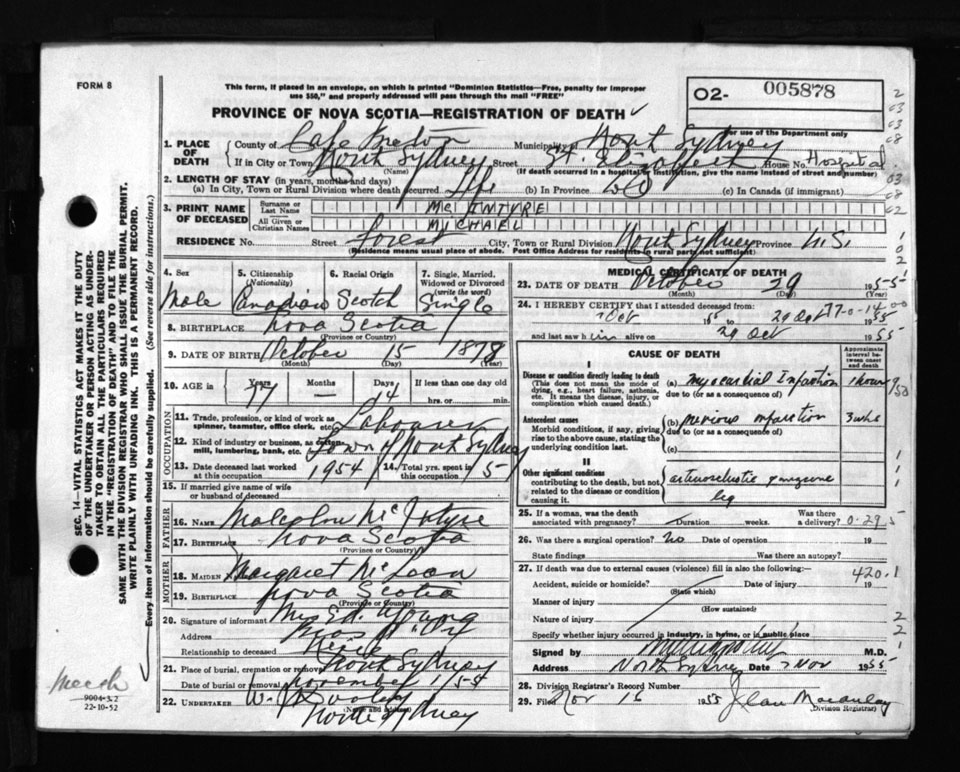 FORM 8
This form, if placed in an envelope, on which is printed "Dominion Statistics—Free, penalty for improper
use $50," and properly addressed will pass through the mail "FREE"
O2- 005878
PROVINCE OF NOVA SCOTIA—REGISTRATION OF DEATH
For use of the Department only
1. PLACE OF DEATH
County of Cape Breton Municipality North Sydney
If in City or Town North Sydney Street St. Elizabeth House No. Hospital
(Name) (If death occurred in a hospital or institution, give the name instead of street and number)
2. LENGTH OF STAY (in years, months and days)
(a) In City, Town or Rural Division where death occurred Life (b) In Province (c) In Canada (if immigrant)
3. PRINT NAME OF DECEASED
Surname or Last Name MC INTYRE
All Given or Christian Names MICHAEL
RESIDENCE No. Street Forest City, Town or Rural Division North Sydney Province N.S.
(Residence means usual place of abode. Post Office Address for residents in rural parts not sufficient)
4. Sex Male
5. Citizenship (Nationality) Canadian
6. Racial Origin Scotch
7. Single, Married, Widowed or Divorced (write the word) Single
8. BIRTHPLACE Nova Scotia
(Province or Country)
9. DATE OF BIRTH October 15 1878
(Month) (Day) (Year)
10. AGE in Years 77 Months — Days 14 If less than one day old
hrs. or min.
OCCUPATION
11. Trade, profession, or kind of work as
spinner, teamster, office clerk, etc. Labourer
12. Kind of industry or business, as cotton
mill, lumbering, bank, etc. Town of North Sydney
13. Date deceased last worked
at this occupation 1954
14. Total yrs. spent in
this occupation 5
15. If married give name of wife
or husband of deceased
FATHER
16. NAME Malcolm McIntyre
17. BIRTHPLACE Nova Scotia
(Province or Country)
MOTHER
18. MAIDEN NAME Margaret McLean
19. BIRTHPLACE Nova Scotia
(Province or Country)
20. Signature of informant Mrs Ed. Young
Address
Relationship to deceased Niece
21. Place of burial, cremation or removal North Sydney
Date of burial or removal November 1/55
22. UNDERTAKER
(Name and address)
North Sydney
MEDICAL CERTIFICATE OF DEATH
23. DATE OF DEATH October 29 1955
(Month) (Day) (Year)
24. I HEREBY CERTIFY that I attended deceased from:
Oct 1955 to 29 Oct 1955
77-0-14
and last saw him alive on 29 Oct 1955
CAUSE OF DEATH
Approximate interval between onset and death
I
Disease or condition directly leading to death
(This does not mean the mode of dying, e.g., heart failure, asthenia, etc. It means the disease, injury, or complication which caused death.)
(a) Myocardial Infarction 1 hour
due to (or as a consequence of)
Antecedent causes
Morbid conditions, if any, giving rise to the above cause, stating the underlying condition last.
(b) previous infarction 3 wks
due to (or as a consequence of)
(c)
II
Other significant conditions
contributing to the death, but not related to the disease or condition causing it.
arteriosclerotic gangrene
leg
25. If a woman, was the death
associated with pregnancy? Duration weeks. Was there a delivery?
0-29
26. Was there a surgical operation? No Date of operation 19
State findings Was there an autopsy?
27. If death was due to external causes (violence) fill in also the following:—
420.1
Accident, suicide or homicide? Date of injury 19
(State which)
Manner of injury
(How sustained)
Nature of injury
Specify whether injury occurred in industry, in home, or in public place
Signed by M.D.
Address North Sydney Date 2 Nov 1955
28. Division Registrar's Record Number
29. Filed Nov 16 1955 Jean Macaulay
(Division Registrar)
SEC. 14—VITAL STATISTICS ACT MAKES IT THE DUTY
OF THE UNDERTAKER OR PERSON ACTING AS UNDER-
TAKER TO OBTAIN ALL THE PARTICULARS REQUIRED
IN THE "REGISTRATION OF DEATH" AND TO FILE THE
SAME WITH THE DIVISION REGISTRAR WHO SHALL ISSUE THE BURIAL PERMIT.
WRITE PLAINLY WITH UNFADING INK. THIS IS A PERMANENT RECORD.
Every item of information should be carefully supplied. (See reverse side for instructions.)
9004-3.T
22-10-52